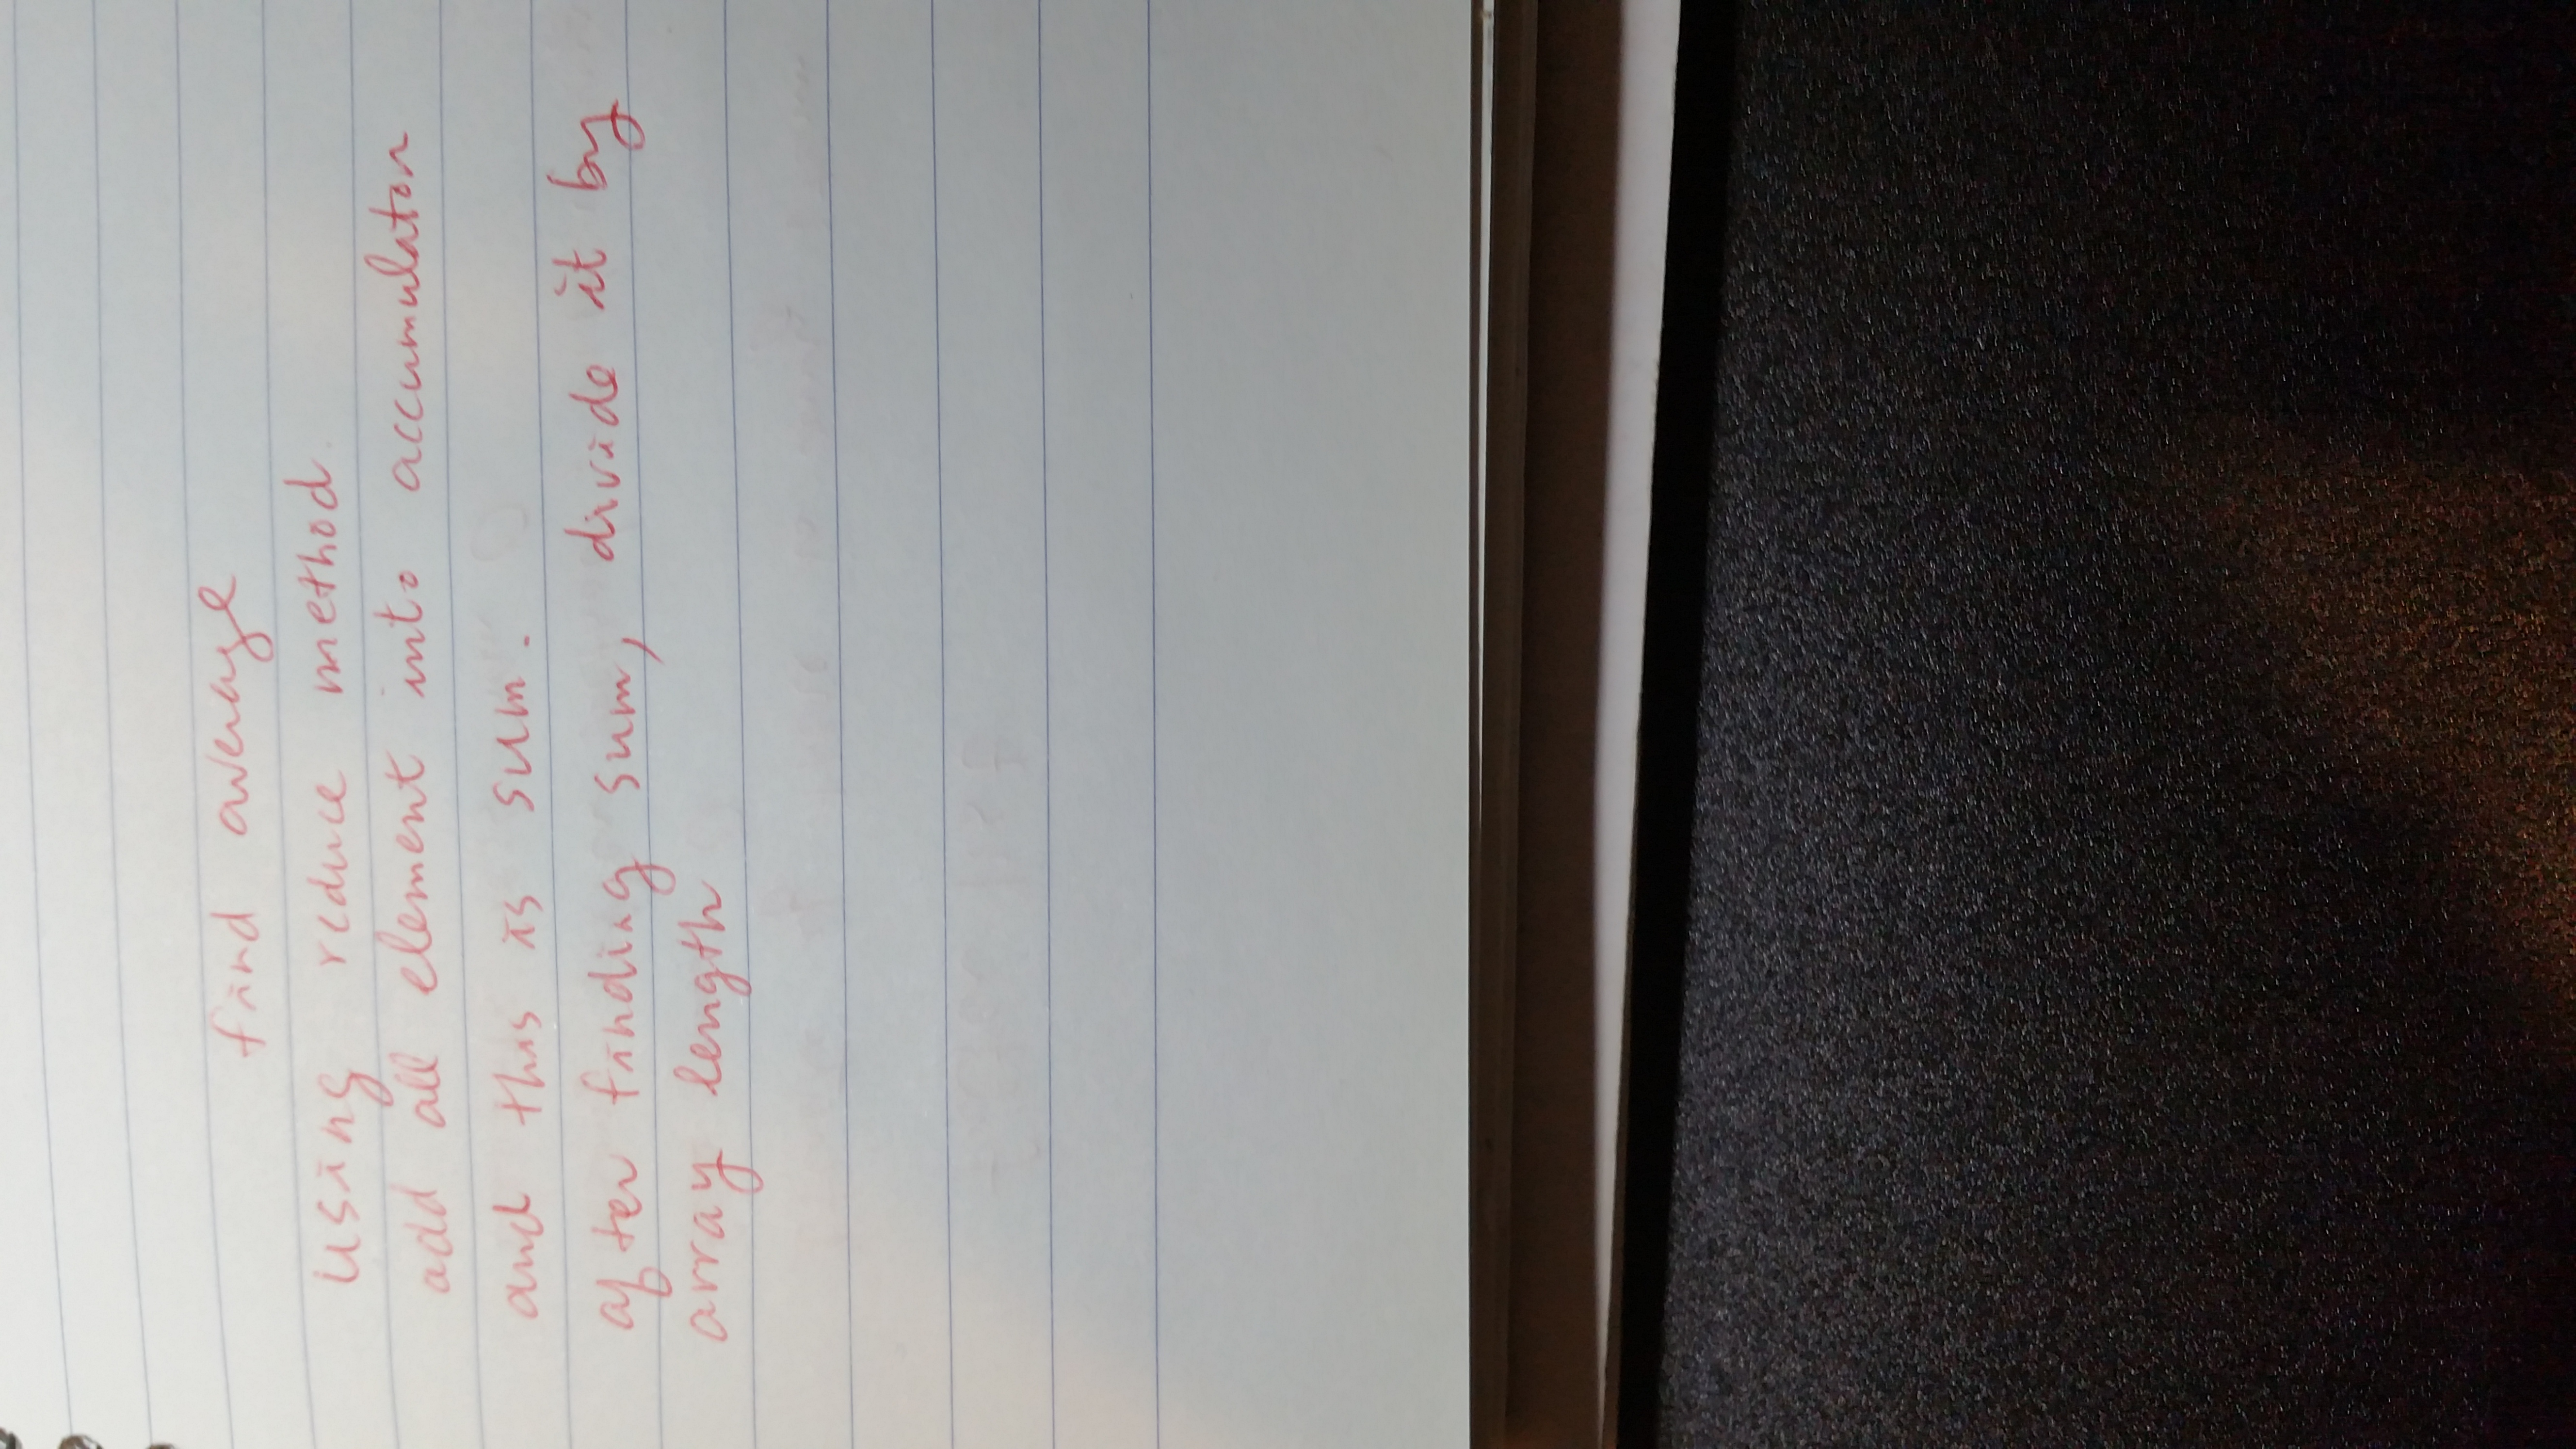 find average
using reduce method
add all element into accumulator
and this is sum.
after finding sum, divide it by
array length